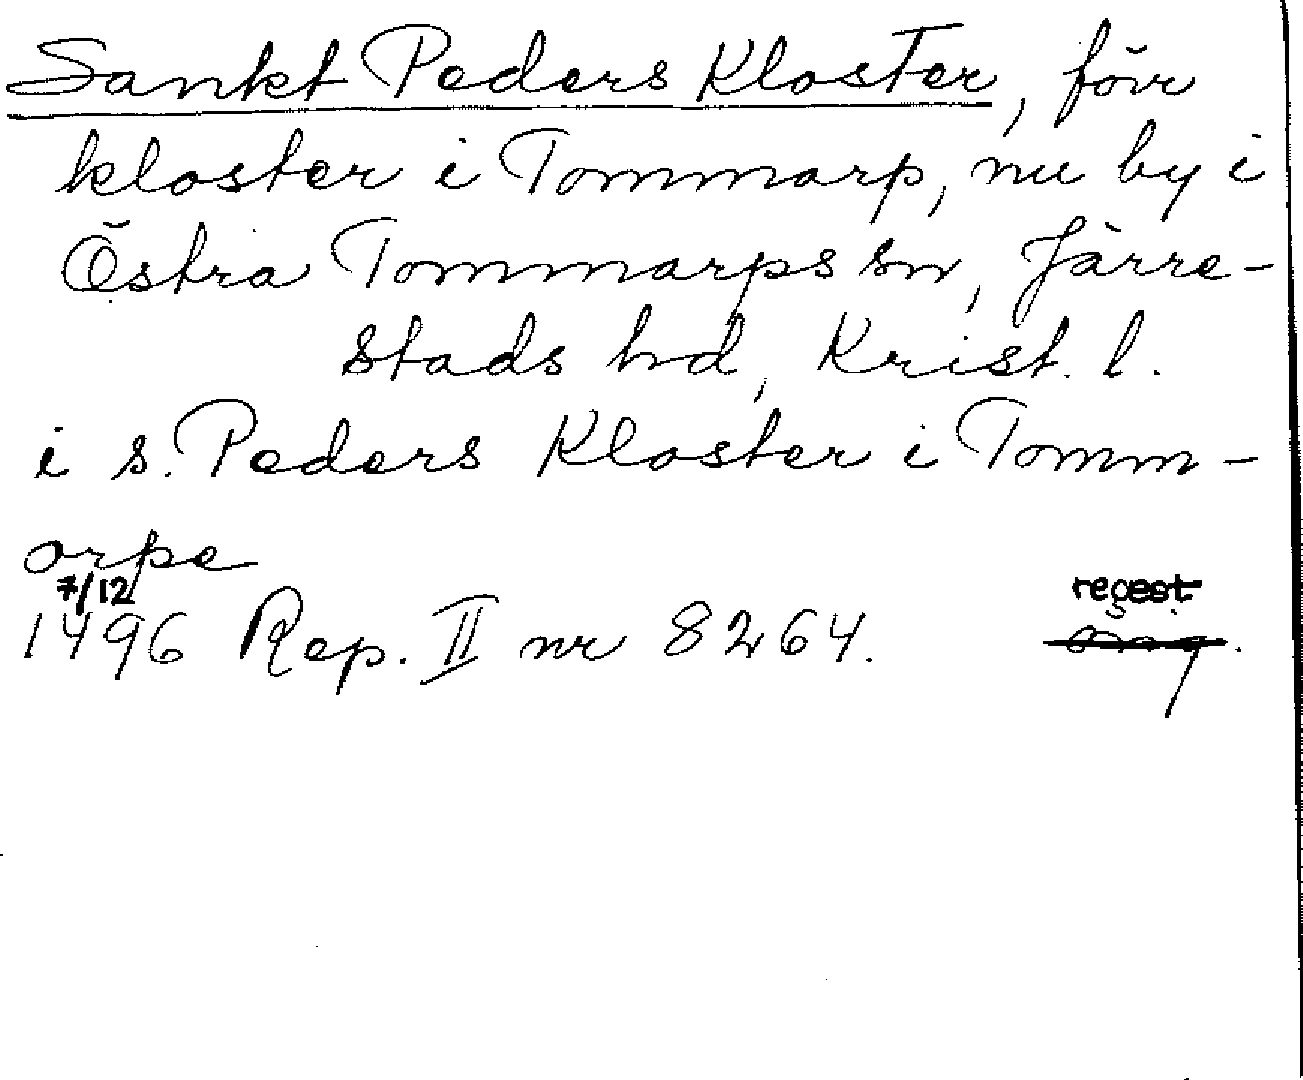 Sankt Peders Kloster, förr
kloster i Tommarp, nu by i
Östra Tommarps sn, Järre-
stads hd, Krist. l.
i s. Peders Kloster i Tomm-
orpe
7/12 regest
1496 Rep. II nr 8264.